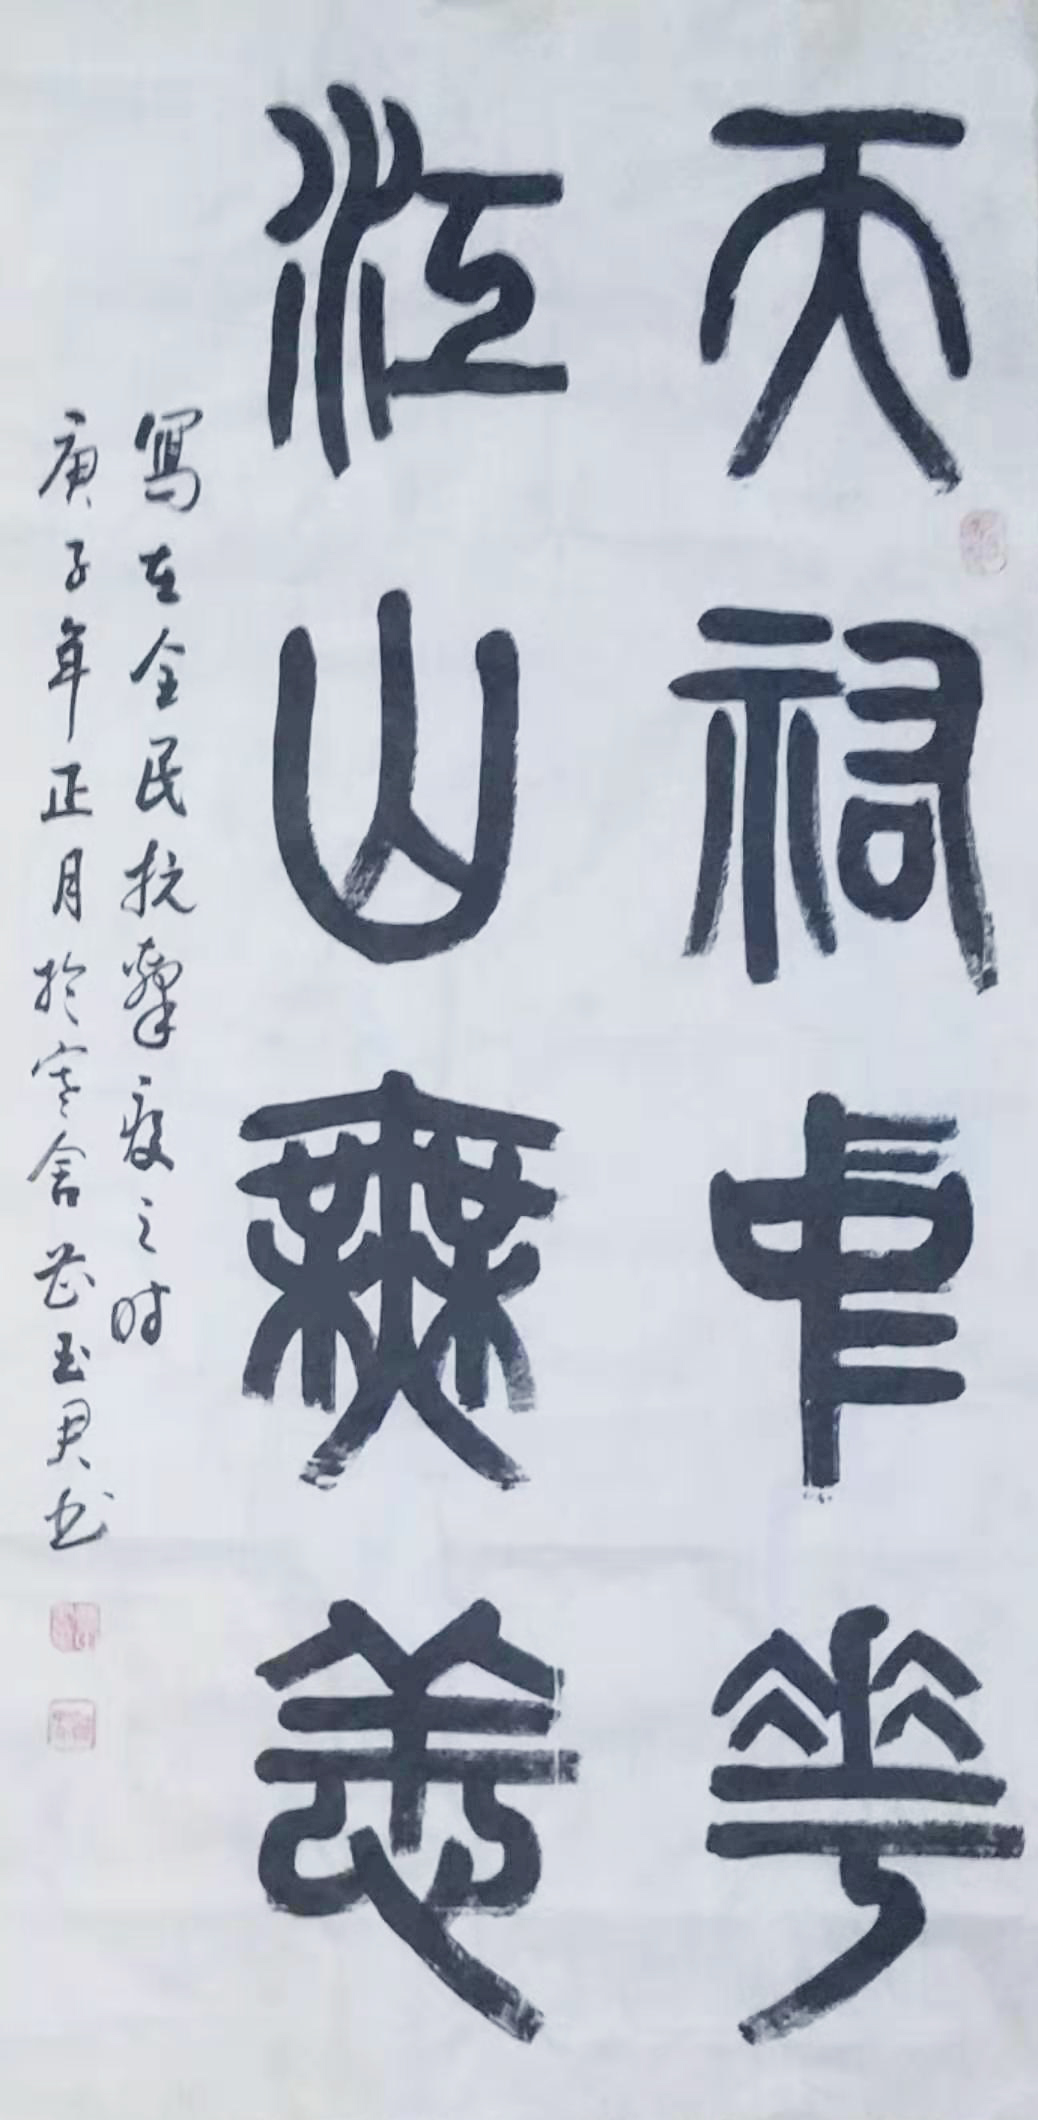 天祐中華
江山無恙
寫在全民抗擊疫之时
庚子年正月於寒舍玉君书